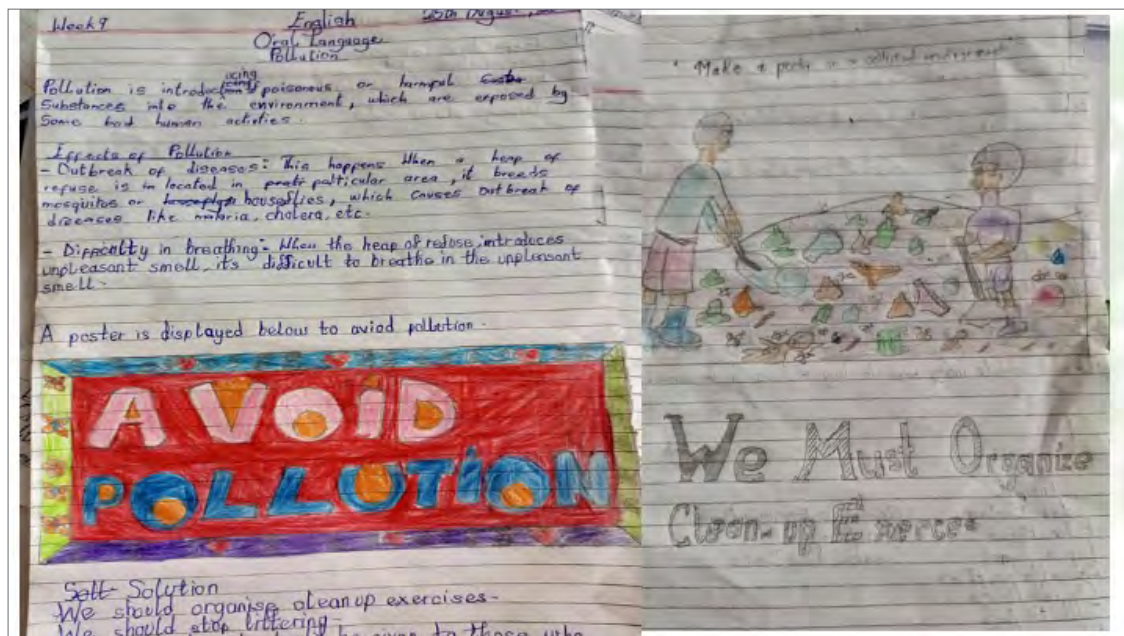 Week 9 English 25th August,
Oral Language
Pollution
Pollution is introducing poisonous or harmful
Substances into the environment, which are exposed by
Some bad human activties.
Effects of Pollution
- Outbreak of diseases: This happens When a heap of
refuse is located in particular area, it breeds
mosquitos or houseflies, which causes outbreak of
diseases like malaria, cholera, etc.
- Difficulty in breathing:- When the heap of refuse introduces
unpleasant smell, it's difficult to breathe in the unpleasant
smell.
A poster is displayed below to aviod pollution.
AVOiD
POLLUTiON
Solution
We should organise cleanup exercises-
We should stop littering-
be given to those who
Make a poster a polluted environment
We Must Organize
Clean-up